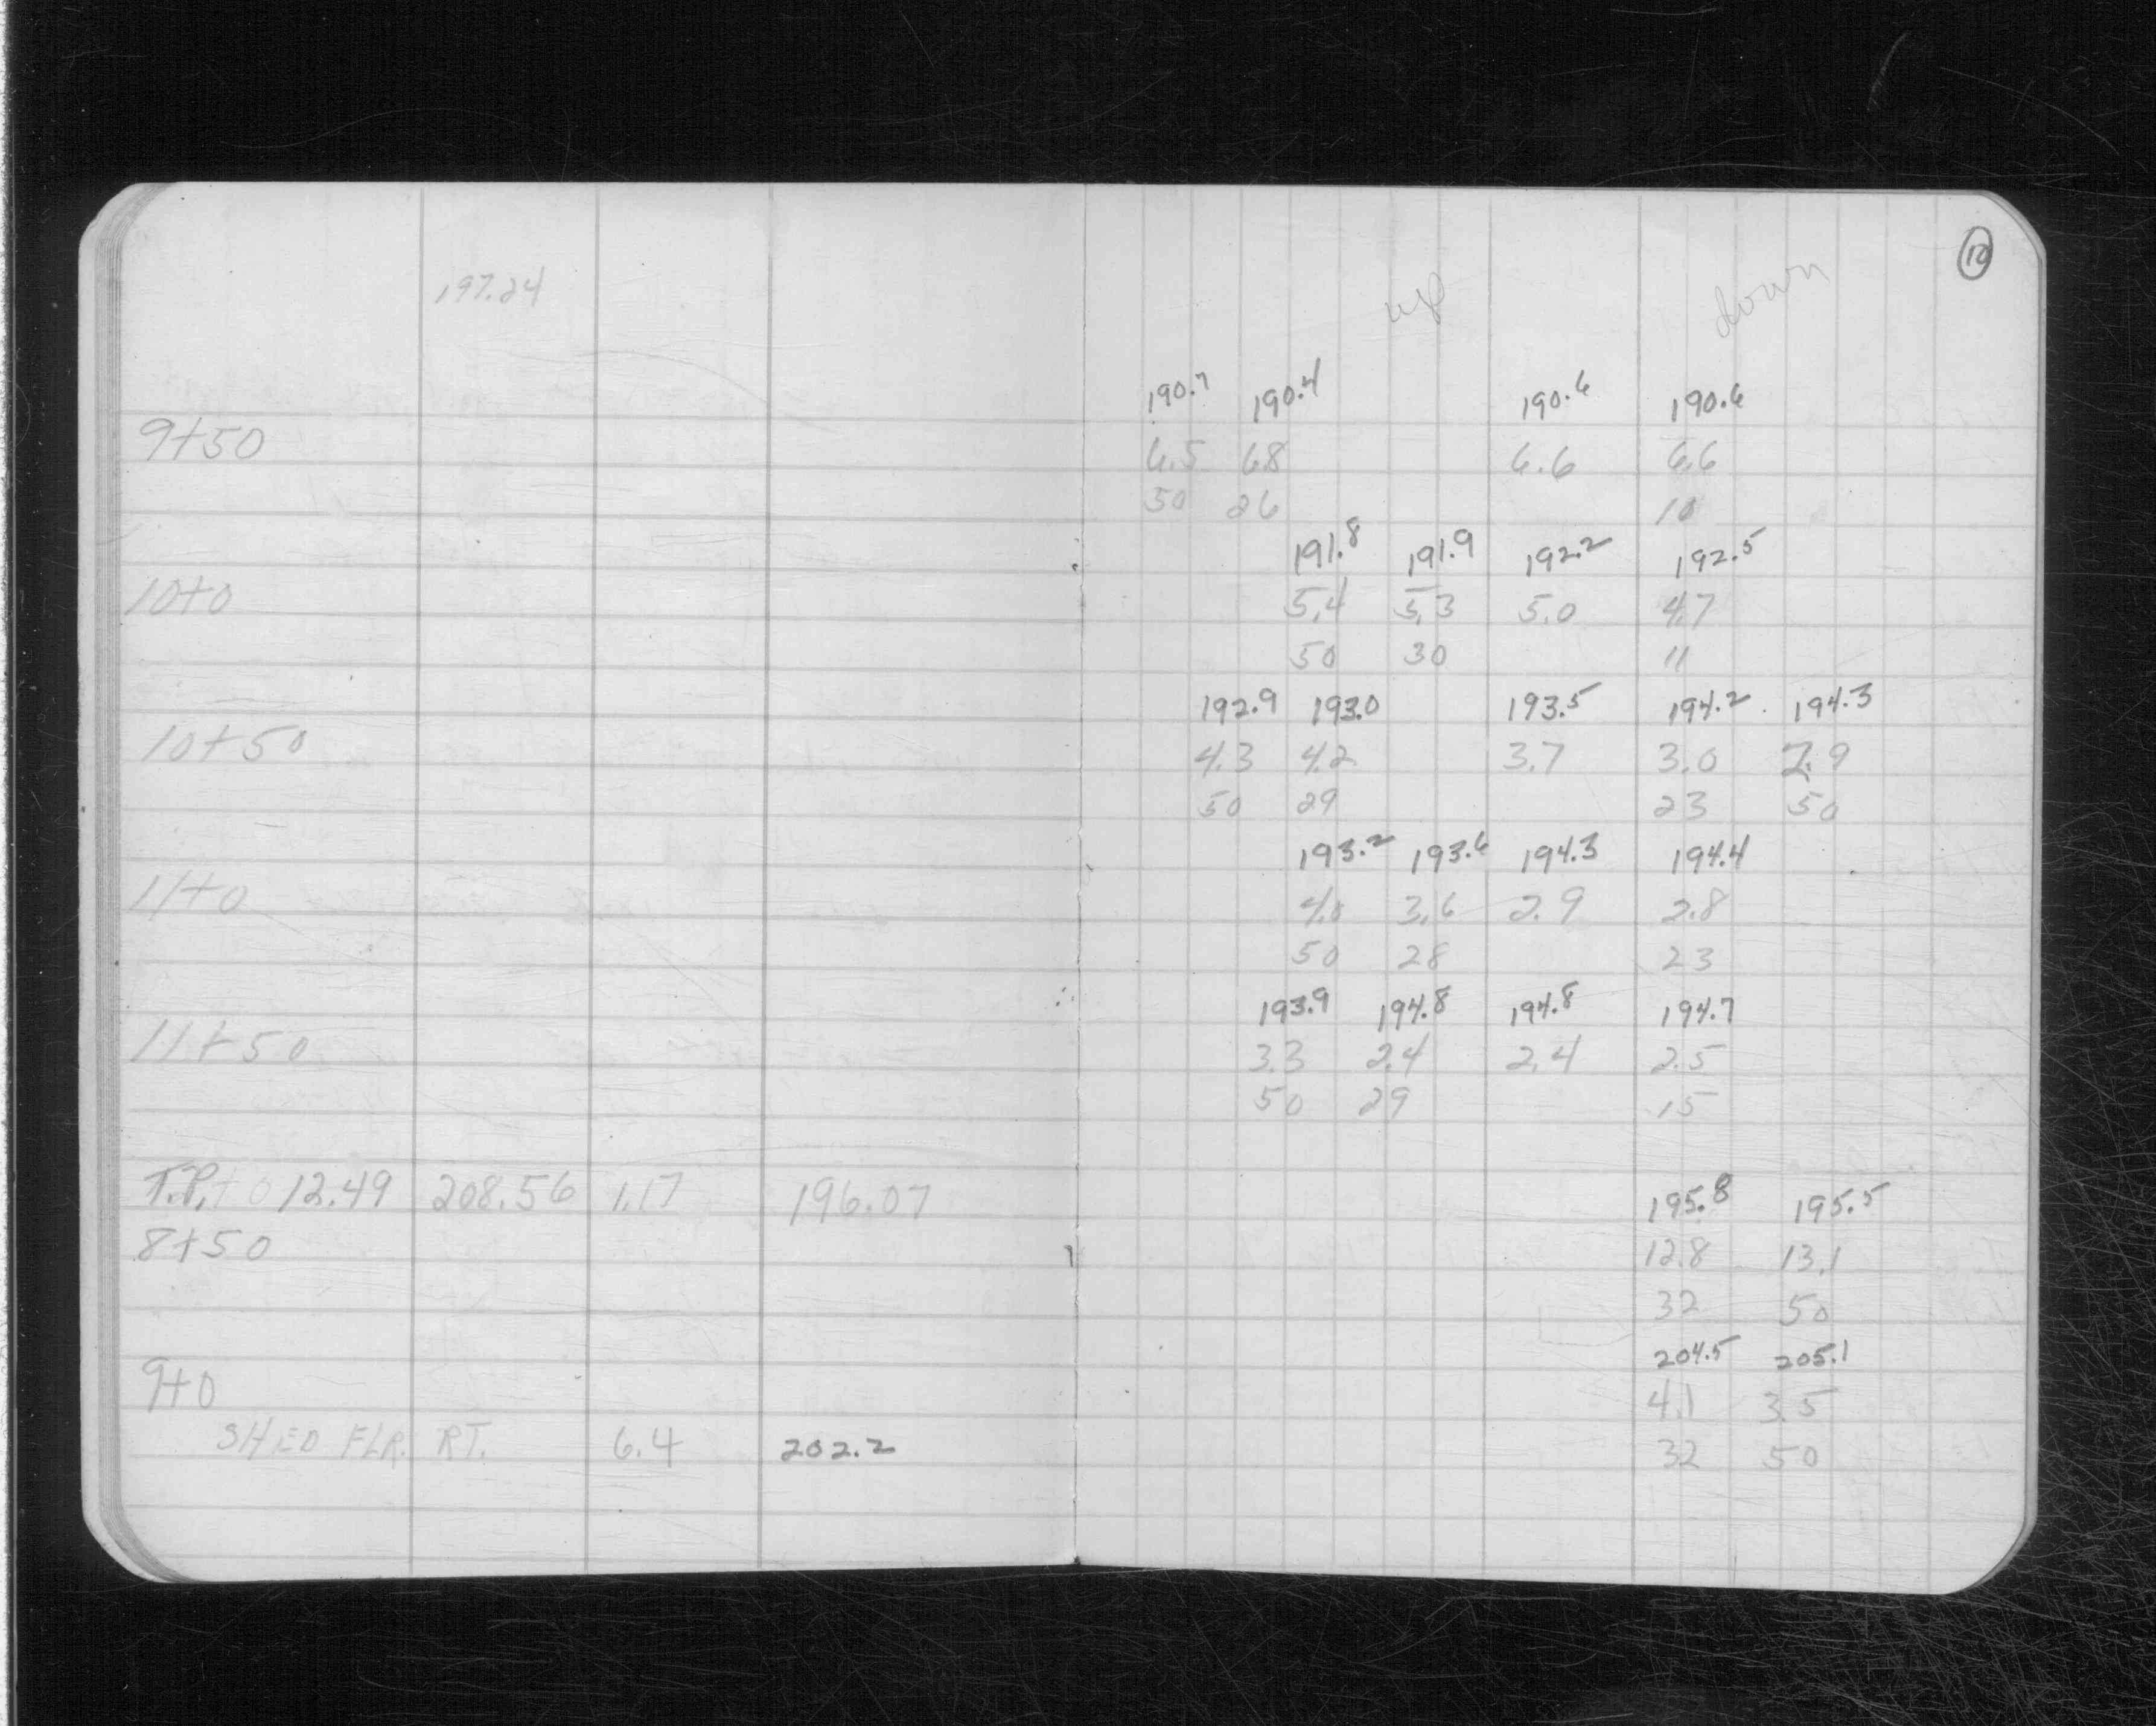 12
197.24 up down
190.7 190.4 190.6 190.6
9+50 6.5 6.8 6.6 6.6
50 26 10
191.8 191.9 192.2 192.5
10+0 5.4 5.3 5.0 4.7
50 30 11
192.9 193.0 193.5 194.2 194.3
10+50 4.3 4.2 3.7 3.0 2.9
50 29 23 50
193.2 193.6 194.3 194.4
11+0 4.0 3.6 2.9 2.8
50 28 23
193.9 194.8 194.8 194.7
11+50 3.3 2.4 2.4 2.5
50 29 15
T.P. 12.49 208.56 1.17 196.07 195.8 195.5
8+50 12.8 13.1
32 50
204.5 205.1
9+0 4.1 3.5
SHED FLR. RT. 6.4 202.2 32 50